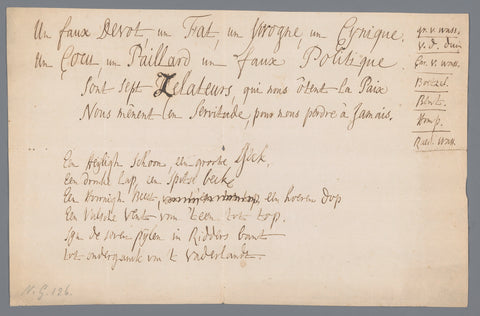 Un faux Devot, un Fat, un Yvrogne, un Cynique.
Un Cocu, un Paillard un faux Politique.
Sont sept Zelateurs, qui nous ôtent la Paix
Nous mênent en Servitude, pour nous perdre à Jamais.
gr. v. wass.
v. d. duin
Car. v. wass.
Boetzel.
Bent.
Komp.
Rand. wass.
Een Heyligh Schoon een groote Geck,
Een dronke Lap, een Spotse beck
Een Koornigh Beest, een hoeren dop
Een Valsche Vent van 't een tot top.
Syn de seven pijlen in Ridders bant
tot ondergank van 't Vaderlandt.
N. G. 126.